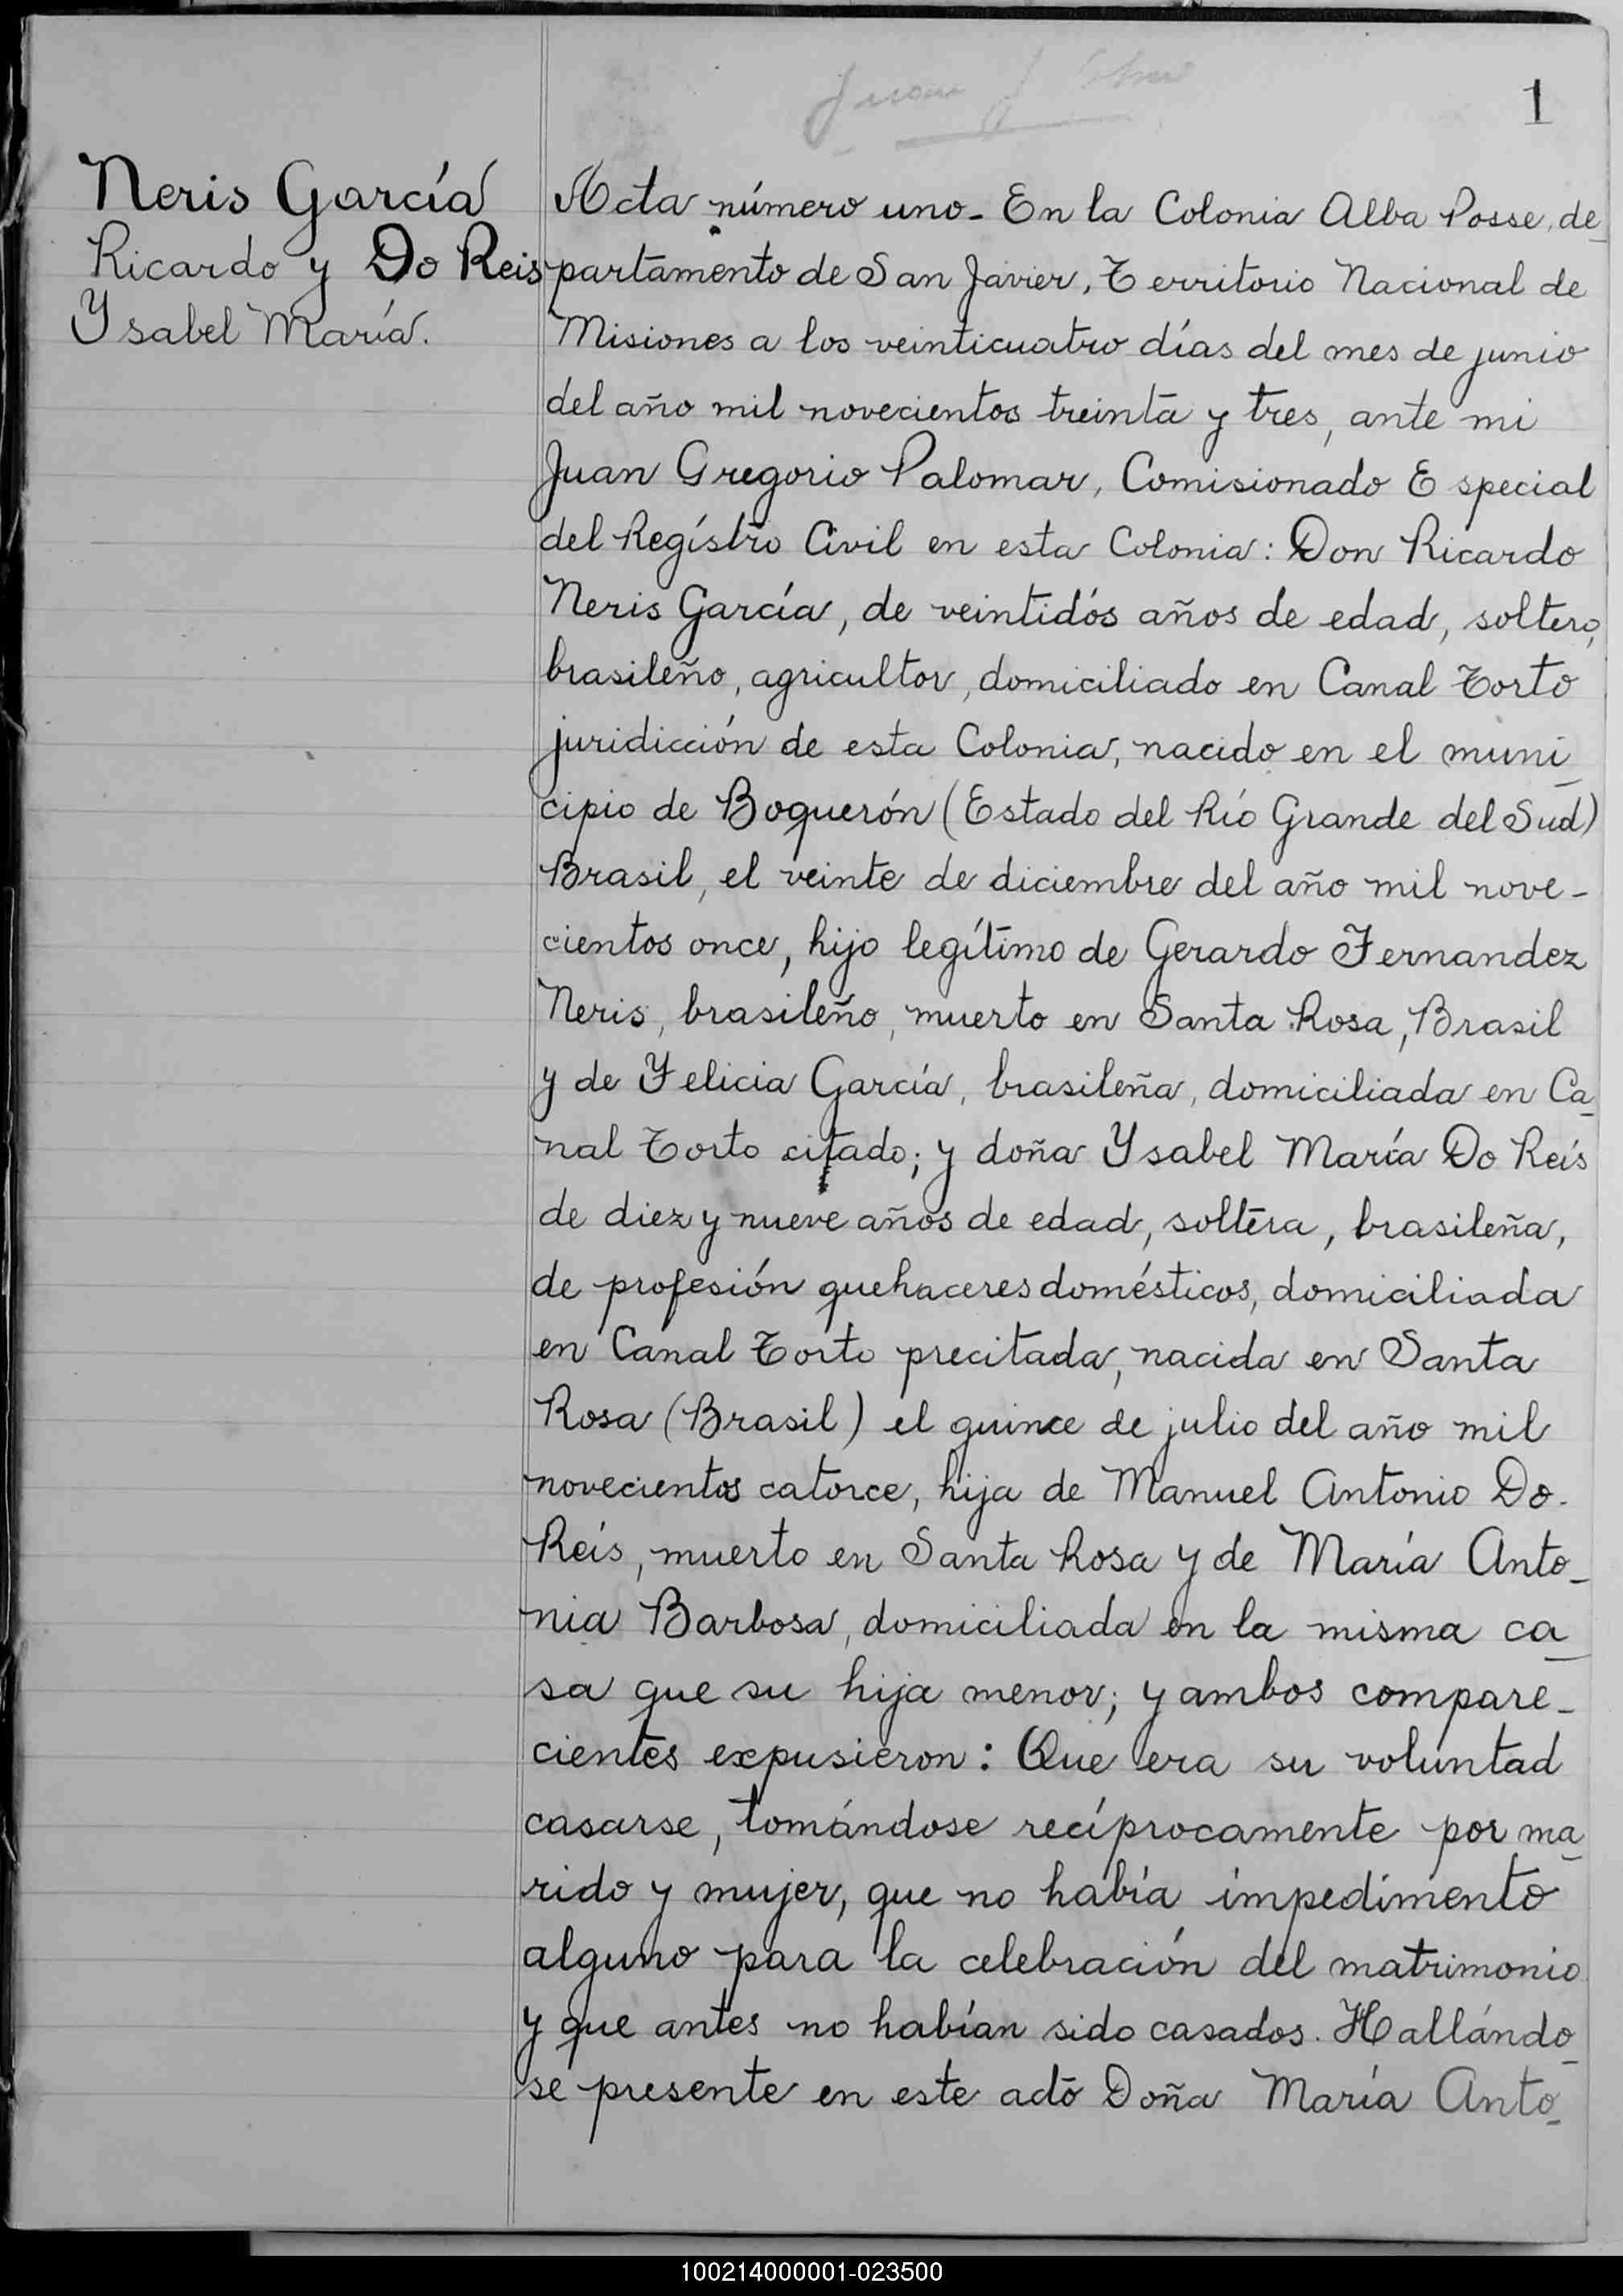 1
Neris García
Ricardo y Do Reis
Ysabel María.
Acta número uno - En la Colonia Alba Posse, de_
partamento de San Javier, Territorio Nacional de
Misiones a los veinticuatro días del mes de junio
del año mil novecientos treinta y tres, ante mi
Juan Gregorio Palomar, Comisionado Especial
del Regístro Civil en esta Colonia: Don Ricardo
Neris García, de veintidós años de edad, soltero,
brasileño, agricultor, domiciliado en Canal Torto
juridicción de esta Colonia, nacido en el muni_
cipio de Boquerón (Estado del Río Grande del Sud)
Brasil, el veinte de diciembre del año mil nove-
cientos once, hijo legítimo de Gerardo Fernandez
Neris, brasileño, muerto en Santa Rosa, Brasil
y de Felicia García, brasileña, domiciliada en Ca_
nal Torto citado; y doña Ysabel María Do Reis
de diez y nueve años de edad, soltera, brasileña,
de profesión quehaceres domésticos, domiciliada
en Canal Torto precitada, nacida en Santa
Rosa (Brasil) el quince de julio del año mil
novecientos catorce, hija de Manuel Antonio Do-
Reis, muerto en Santa Rosa y de María Anto_
nia Barbosa, domiciliada en la misma ca_
sa que su hija menor; y ambos compare_
cientes expusieron: Que era su voluntad
casarse, tomándose recíprocamente por ma_
rido y mujer, que no había impedimento
alguno para la celebración del matrimonio
y que antes no habían sido casados. Hallándo_
se presente en este acto Doña María Anto_
100214000001-023500